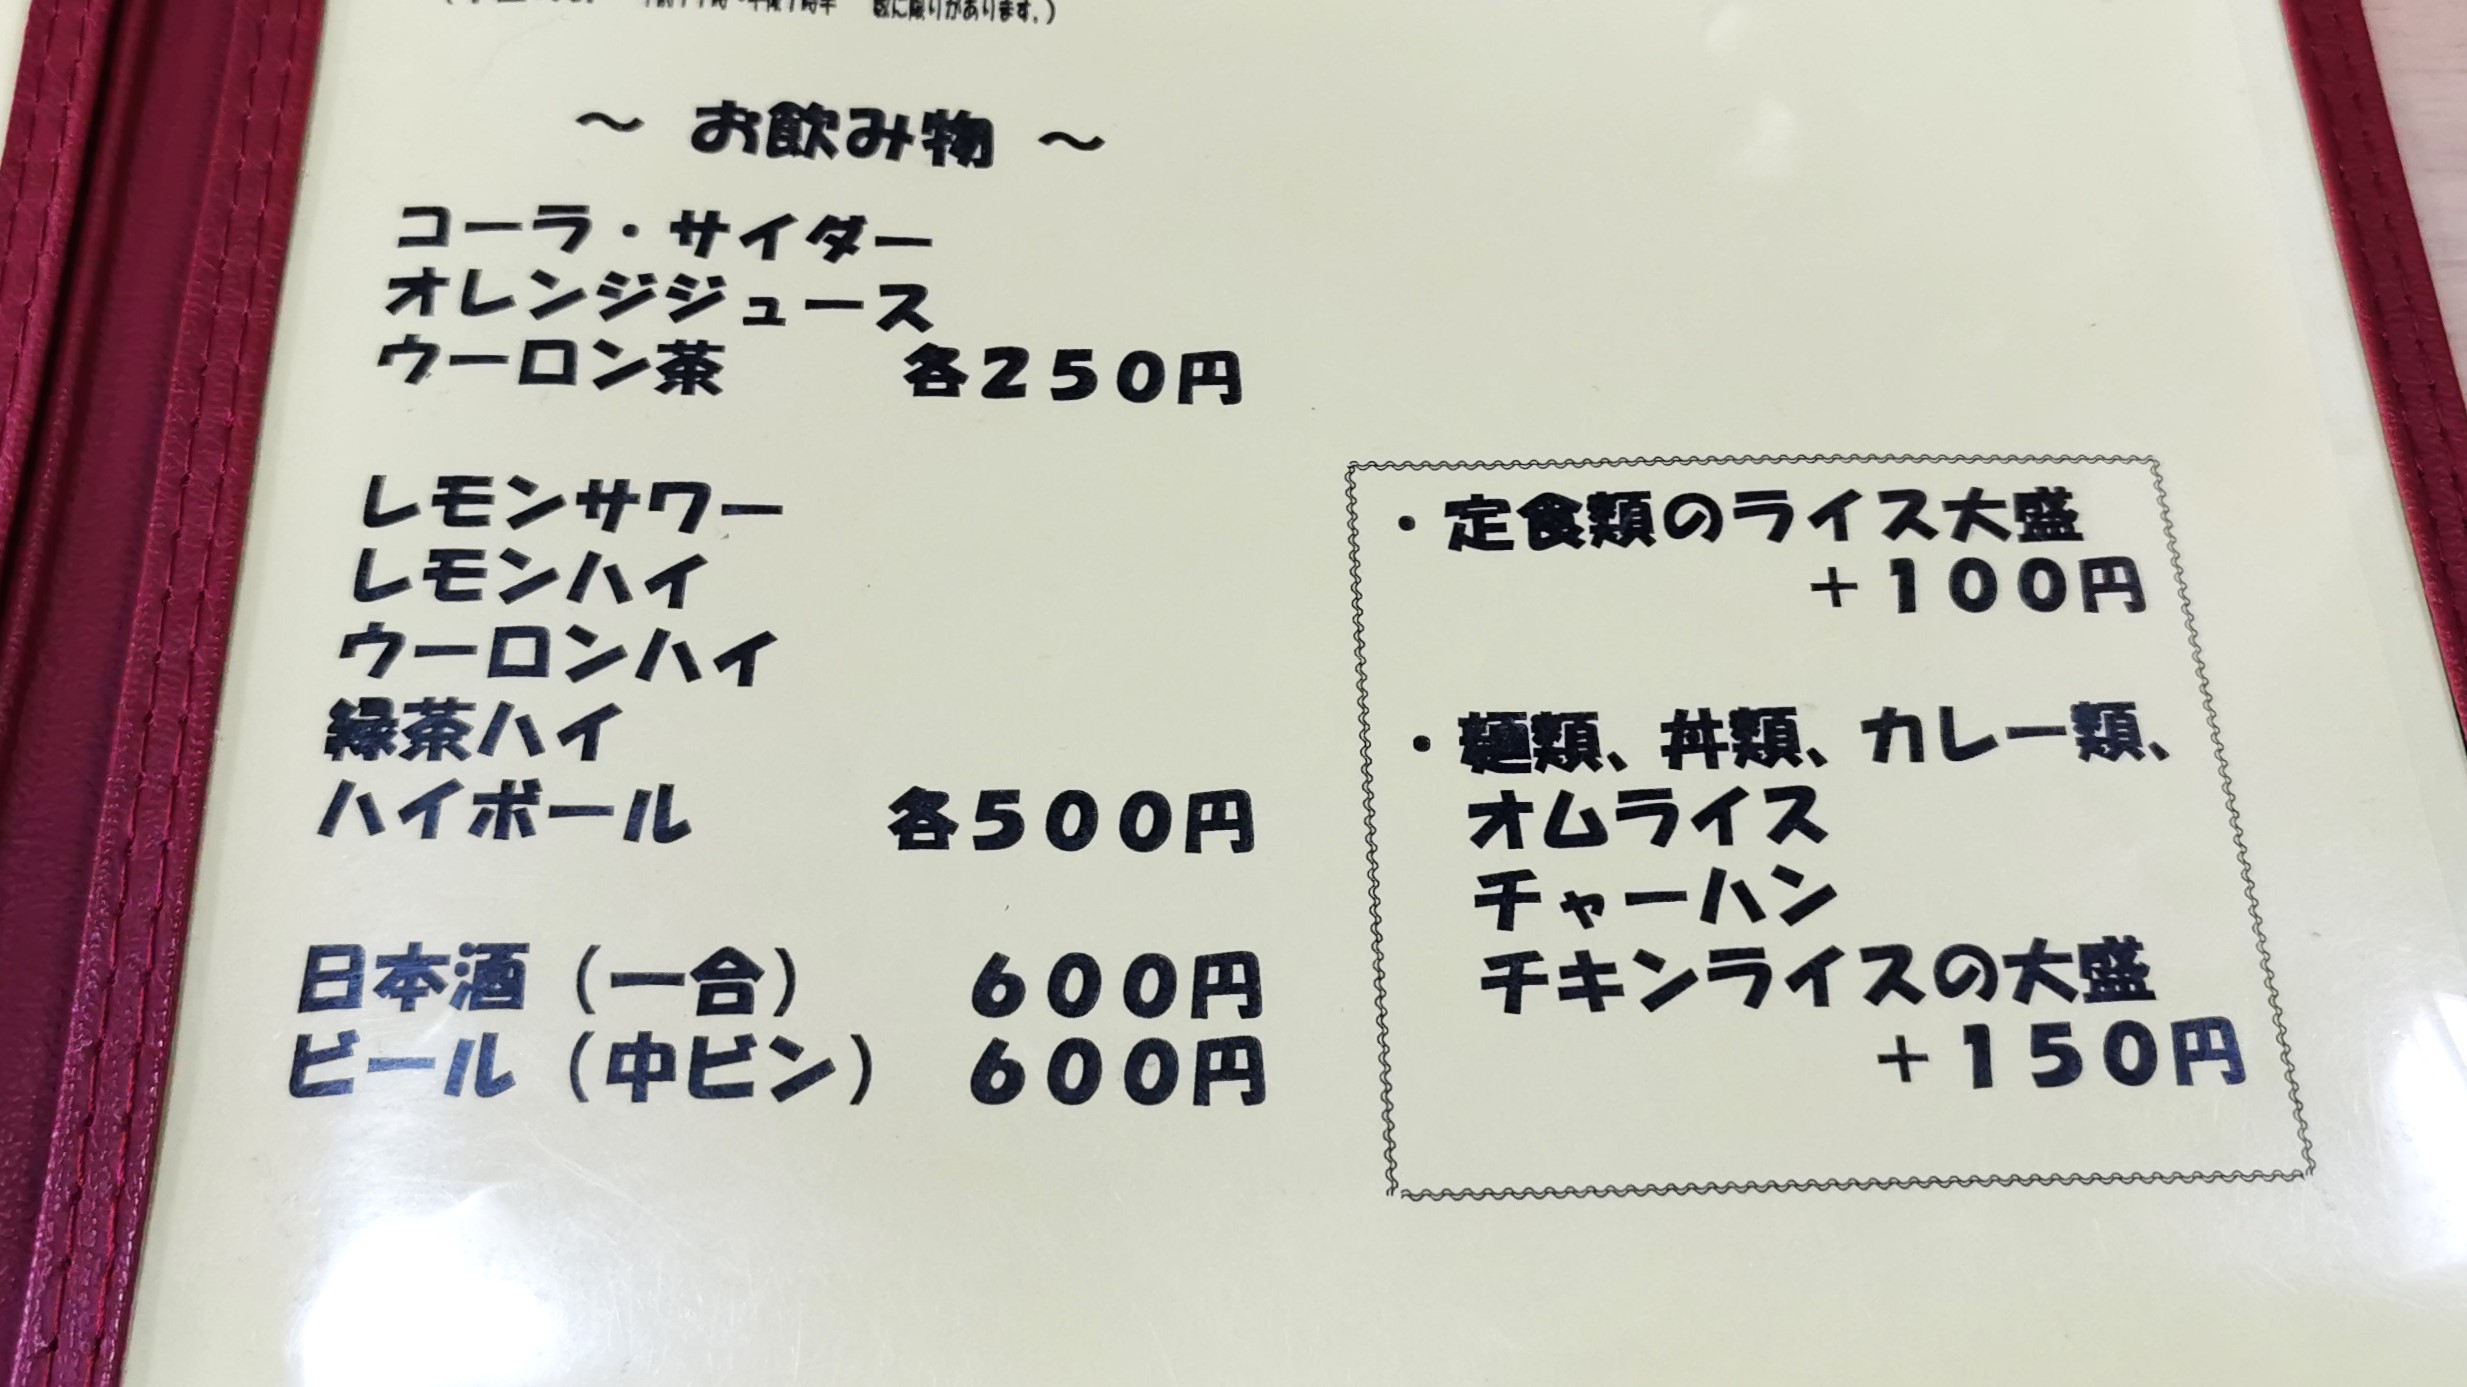 数に限りがあります。)
～ お飲み物 ～
コーラ・サイダー
オレンジジュース
ウーロン茶 各250円
レモンサワー
レモンハイ
ウーロンハイ
緑茶ハイ
ハイボール 各500円
日本酒（一合） 600円
ビール（中ビン） 600円
・定食類のライス大盛
＋100円
・麺類、丼類、カレー類、
オムライス
チャーハン
チキンライスの大盛
＋150円